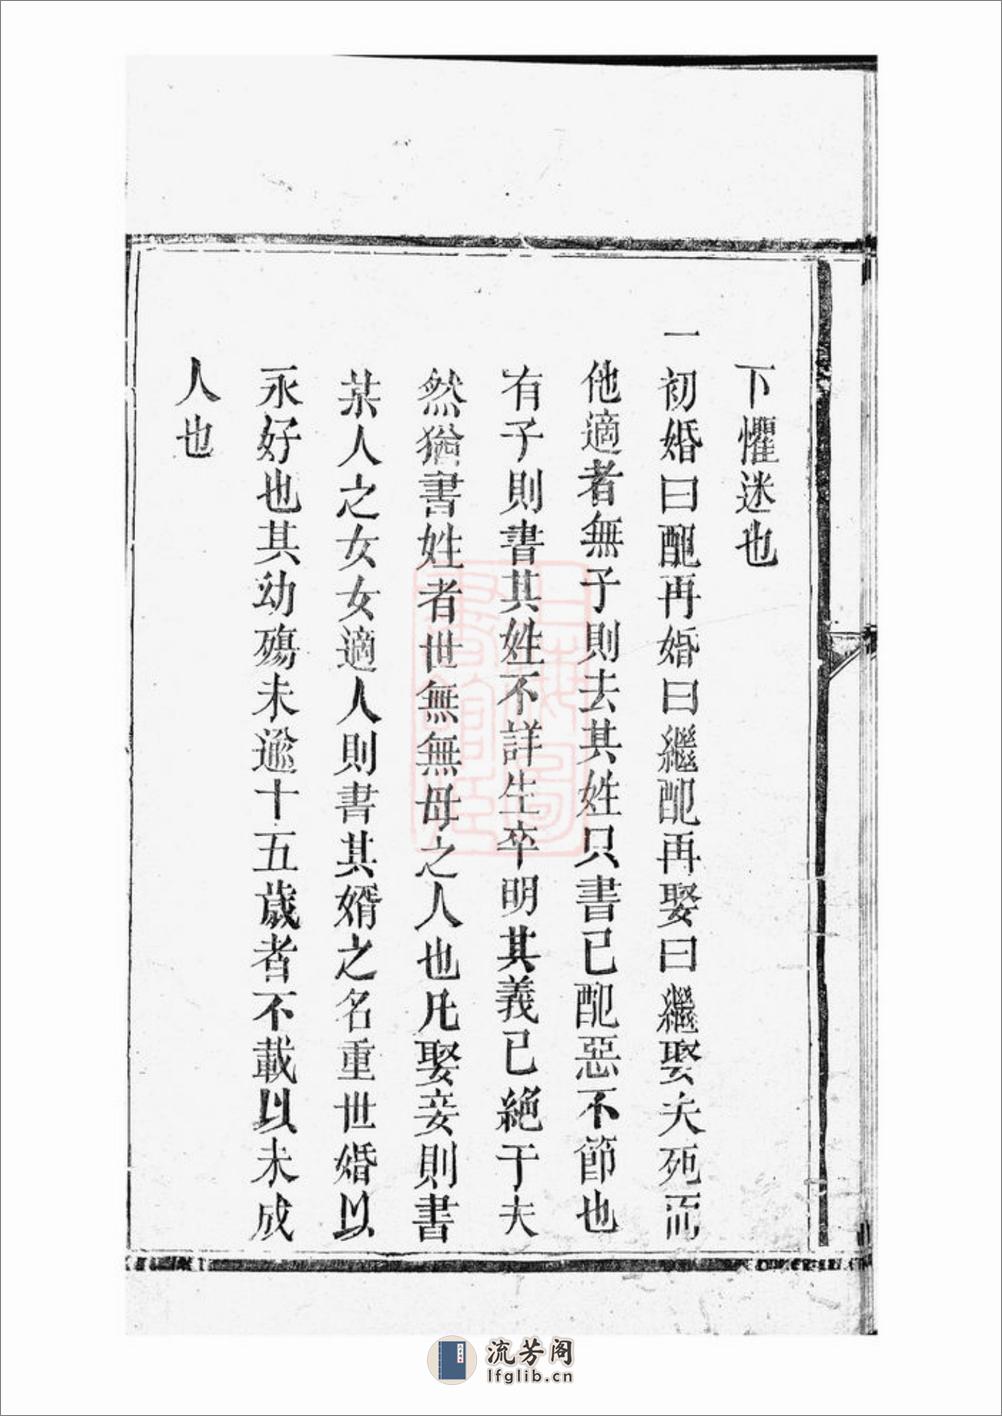 下懼迷也
一初婚曰配再婚曰繼配再娶曰繼娶夫死而
他適者無子則去其姓只書已配惡不節也
有子則書其姓不詳生卒明其義已絕于夫
然猶書姓者世無無母之人也凡娶妾則書
某人之女女適人則書其婿之名重世婚以
永好也其幼殤未逾十五歲者不載以未成
人也
流芳阁
lfglib.cn